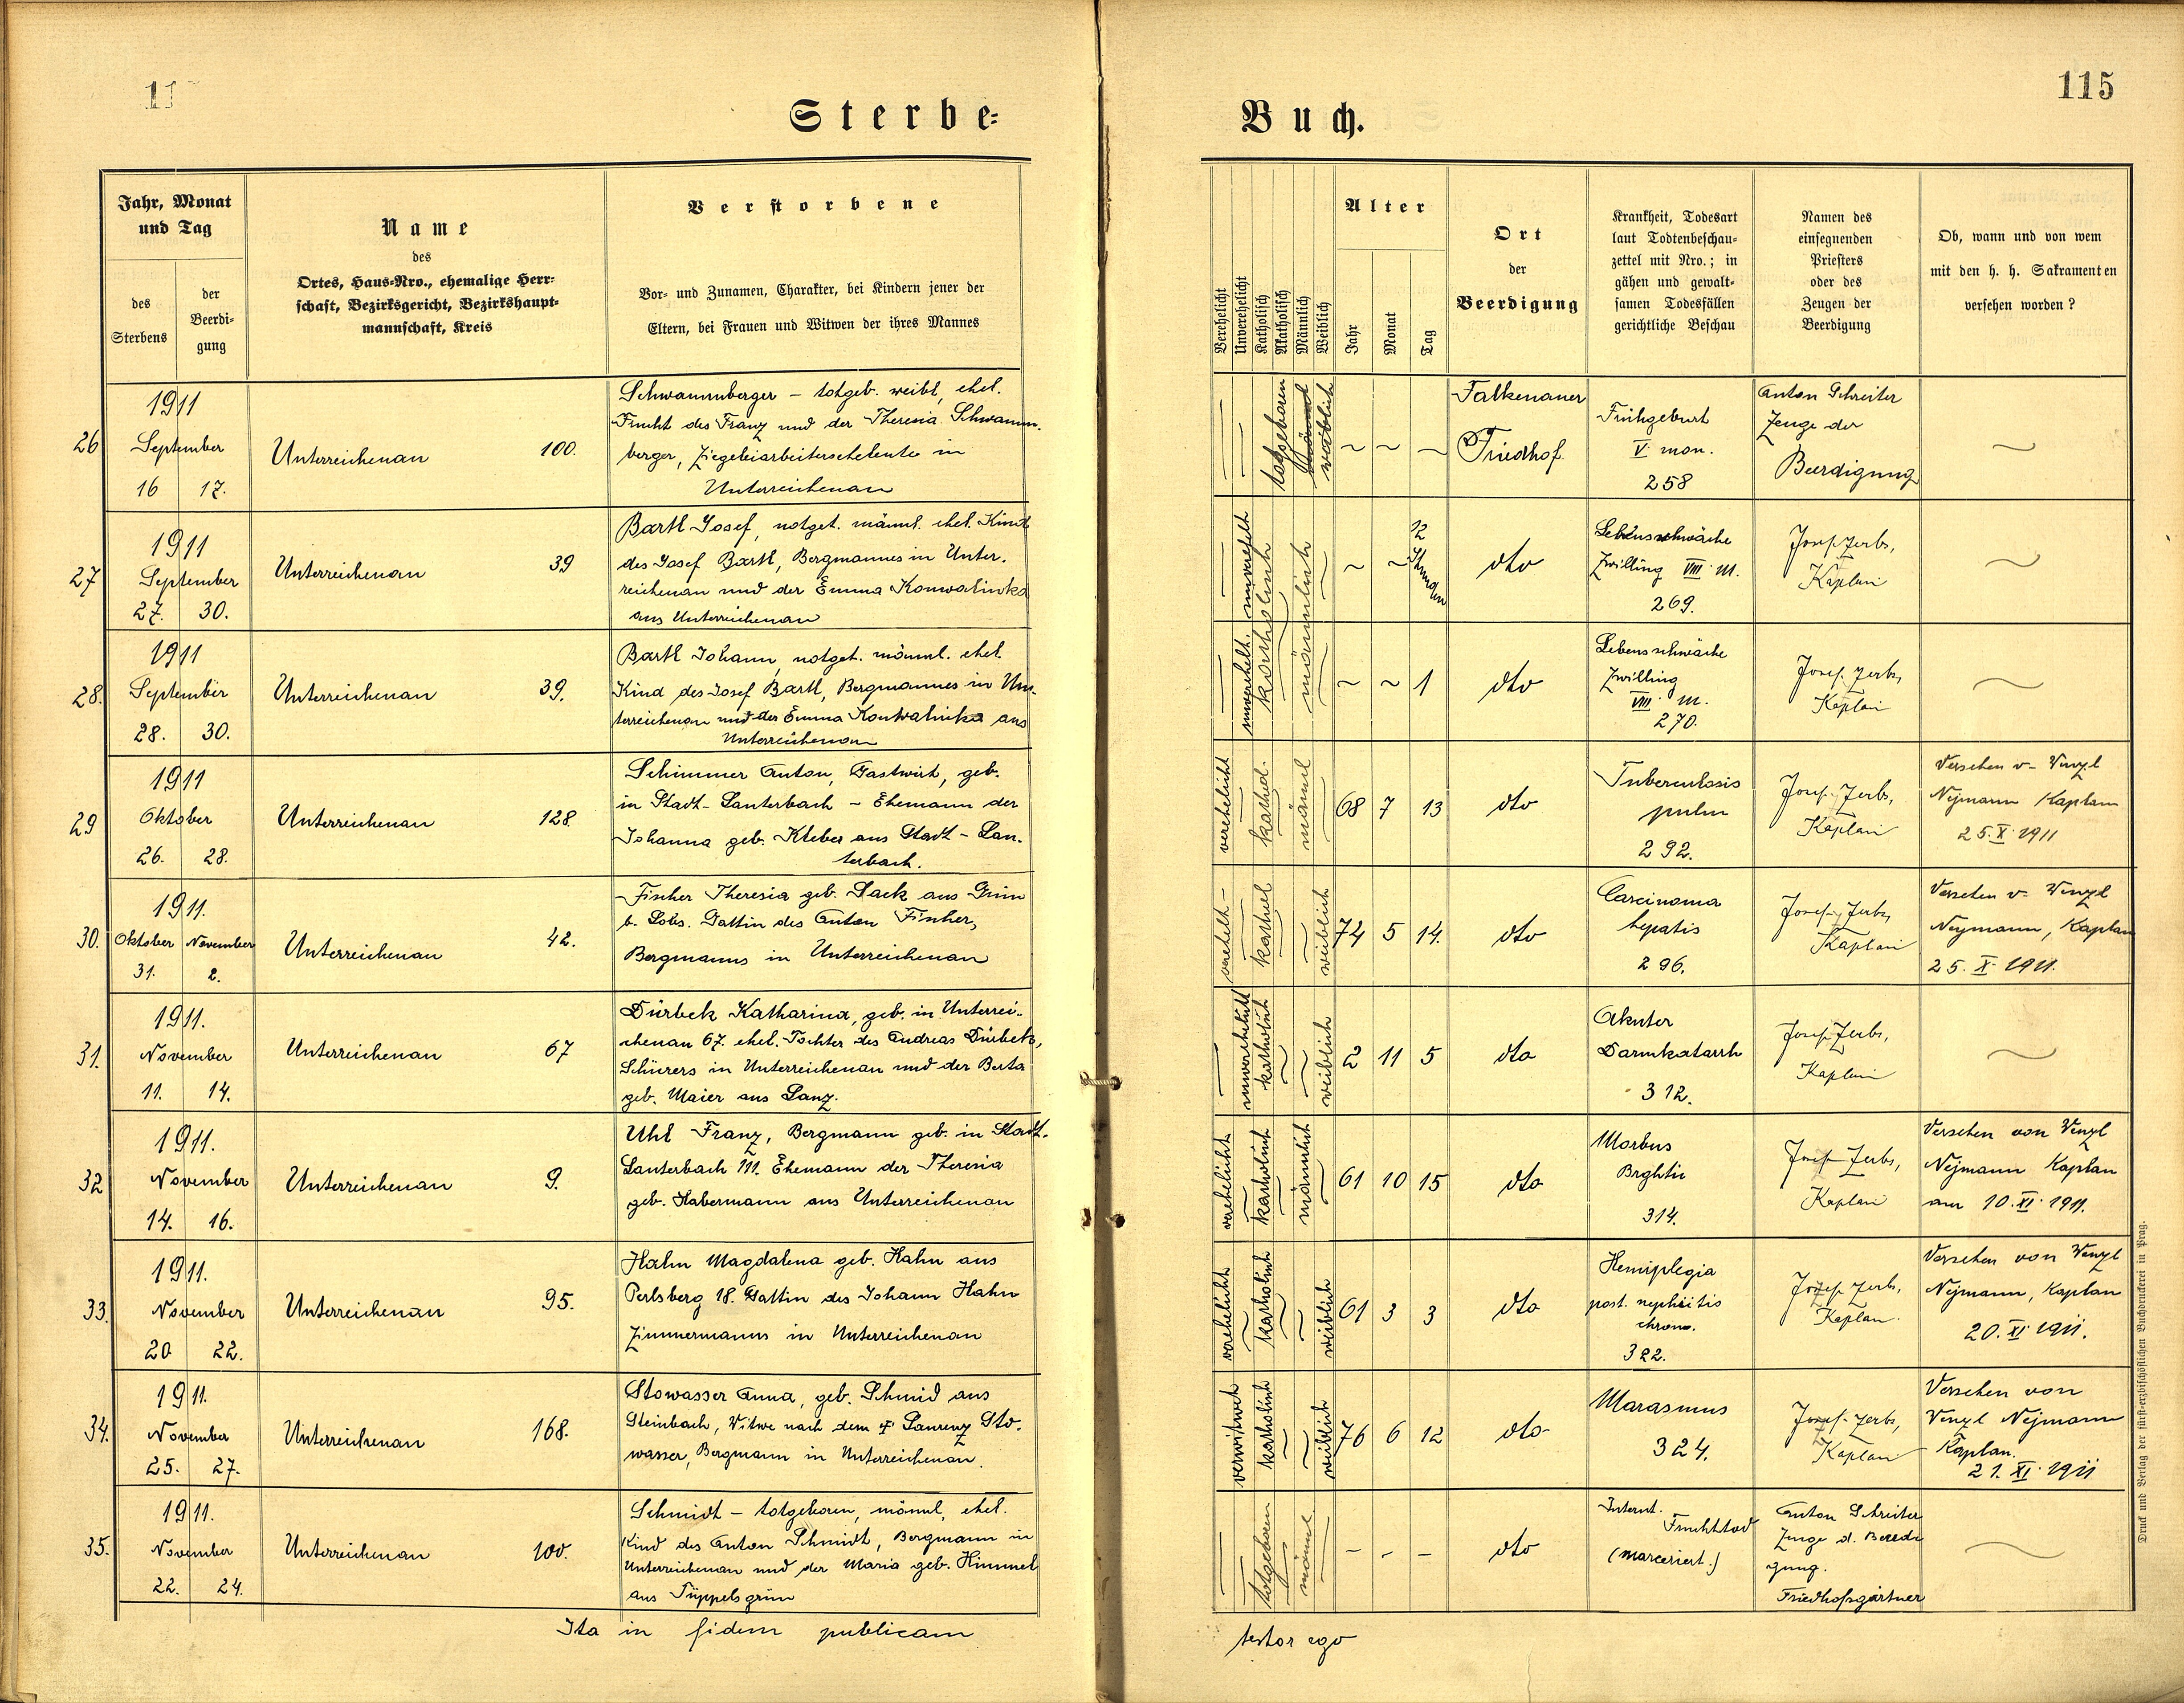 11
115
Sterbe-
Buch.
Jahr, Monat
und Tag
des
Sterbens
der
Beerdi-
gung
Name
des
Ortes, Haus-Nro., ehemalige Herr-
schaft, Bezirksgericht, Bezirkshaupt-
mannschaft, Kreis
Verstorbene
Vor- und Zunamen, Charakter, bei Kindern jener der
Eltern, bei Frauen und Witwen der ihres Mannes
Verehelicht
Unverehelicht
Katholisch
Akatholisch
Männlich
Weiblich
Alter
Jahr
Monat
Tag
Ort
der
Beerdigung
Krankheit, Todesart
laut Todtenbeschau-
zettel mit Nro.; in
gähen und gewalt-
samen Todesfällen
gerichtliche Beschau
Namen des
einsegnenden
Priesters
oder des
Zeugen der
Beerdigung
Ob, wann und von wem
mit den h. h. Sakramenten
versehen worden?
26
1911
September
16 17.
Unterreichenau 100.
Schwammberger – totgeb. weibl, ehel.
Frucht des Franz und der Theresia Schwamm-
berger, Ziegeleiarbeiterseheleute in
Unterreichenau
totgeboren
weiblich
Falkenauer
Friedhof.
Frühgeburt
V mon.
258
Anton Schreiter
Zeuge der
Beerdigung
27
1911
September
27. 30.
Unterreichenau 39
Bartl Josef, notget. männl. ehel. Kind
des Josef Bartl, Bergmannes in Unter-
reichenau und der Emma Konwalinka
aus Unterreichenau
unverehelt
katholisch
männlich
12
Stunden
dto
Lebensschwäche
Zwilling VIII M.
269.
Josef Zerbs,
Kaplan
28.
1911
September
28. 30.
Unterreichenau 39.
Bartl Johann, notget. männl. ehel.
Kind des Josef Bartl, Bergmannes in Un-
terreichenau und der Emma Konwalinka aus
Unterreichenau
unverehelt.
1
dto
Lebensschwäche
Zwilling
VIII M.
270.
Josef Zerbs,
Kaplan
29
1911
Oktober
26. 28.
Unterreichenau 128.
Schimmer Anton, Gastwirt, geb.
in Stadt-Lauterbach – Ehemann der
Johanna geb. Kleber aus Stadt-Lau-
terbach.
verehelicht
kathol.
männl
68 7 13
dto
Tuberculosis
pulm
292.
Josef Zerbs,
Kaplan
Versehen v. Wenzl
Nejmann Kaplan
25. X 1911
30.
1911.
Oktober November
31. 2.
Unterreichenau 42.
Fischer Theresia geb. Sack aus Grün
b. Lobs. Gattin des Anton Fischer,
Bergmanns in Unterreichenau
verehelt
weiblich
74 5 14.
dto
Carcinoma
hepatis
296.
Josef Zerbs,
Kaplan
Versehen v. Wenzl
Nejmann, Kaplan
25. X 1911.
31.
1911.
November
11. 14.
Unterreichenau 67
Dürbek Katharina, geb. in Unterrei-
chenau 67. ehel. Tochter des Andreas Dürbek,
Schürers in Unterreichenau und der Berta
geb. Maier aus Lanz.
unverehelicht
katholisch
weiblich
2 11 5
dto
Akuter
Darmkatarrh
312.
Josef Zerbs,
Kaplan
32
1911.
November
14. 16.
Unterreichenau 9.
Uhl Franz, Bergmann geb. in Stadt-
Lauterbach 111. Ehemann der Theresia
geb. Habermann aus Unterreichenau
verehelicht
katholisch
männlich
61 10 15
dto
Morbus
Brghtii
314.
Josef Zerbs,
Kaplan
Versehen von Wenzl
Nejmann Kaplan
am 10. XI. 1911.
33.
1911.
November
20 22.
Unterreichenau 95.
Hahn Magdalena geb. Hahn aus
Perlsberg 18. Gattin des Johann Hahn
Zimmermanns in Unterreichenau
verehelicht
katholisch
weiblich
61 3 3
dto
Hemiplegia
post. nephritis
chron.
322.
Josef Zerbs,
Kaplan.
Versehen von Wenzl
Nejmann, Kaplan
20. XI. 1911.
34.
1911.
November
25. 27.
Unterreichenau 168.
Stowasser Anna, geb. Schmid aus
Steinbach, Witwe nach dem † Laurenz Sto-
wasser, Bergmann in Unterreichenau.
verwitwet
katholisch
weiblich
76 6 12
dto
Marasmus
324.
Josef Zerbs,
Kaplan
Versehen von
Wenzl Nejmann
Kaplan.
21. XI. 1911
35.
1911.
November
22. 24.
Unterreichenau 100.
Schmidt – totgeboren, männl, ehel.
Kind des Anton Schmidt, Bergmann in
Unterreichenau und der Maria geb. Himmel
aus Tüppelsgrün
totgeboren
männl
dto
Internt.
Fruchttod
(marceriert.)
Anton Schreiter
Zeuge d. Beerdi
gung.
Friedhofsgärtner
Ita in fidem publicam
testor ego
Druck und Verlag der fürst-erzbischöflichen Buchdruckerei in Prag.